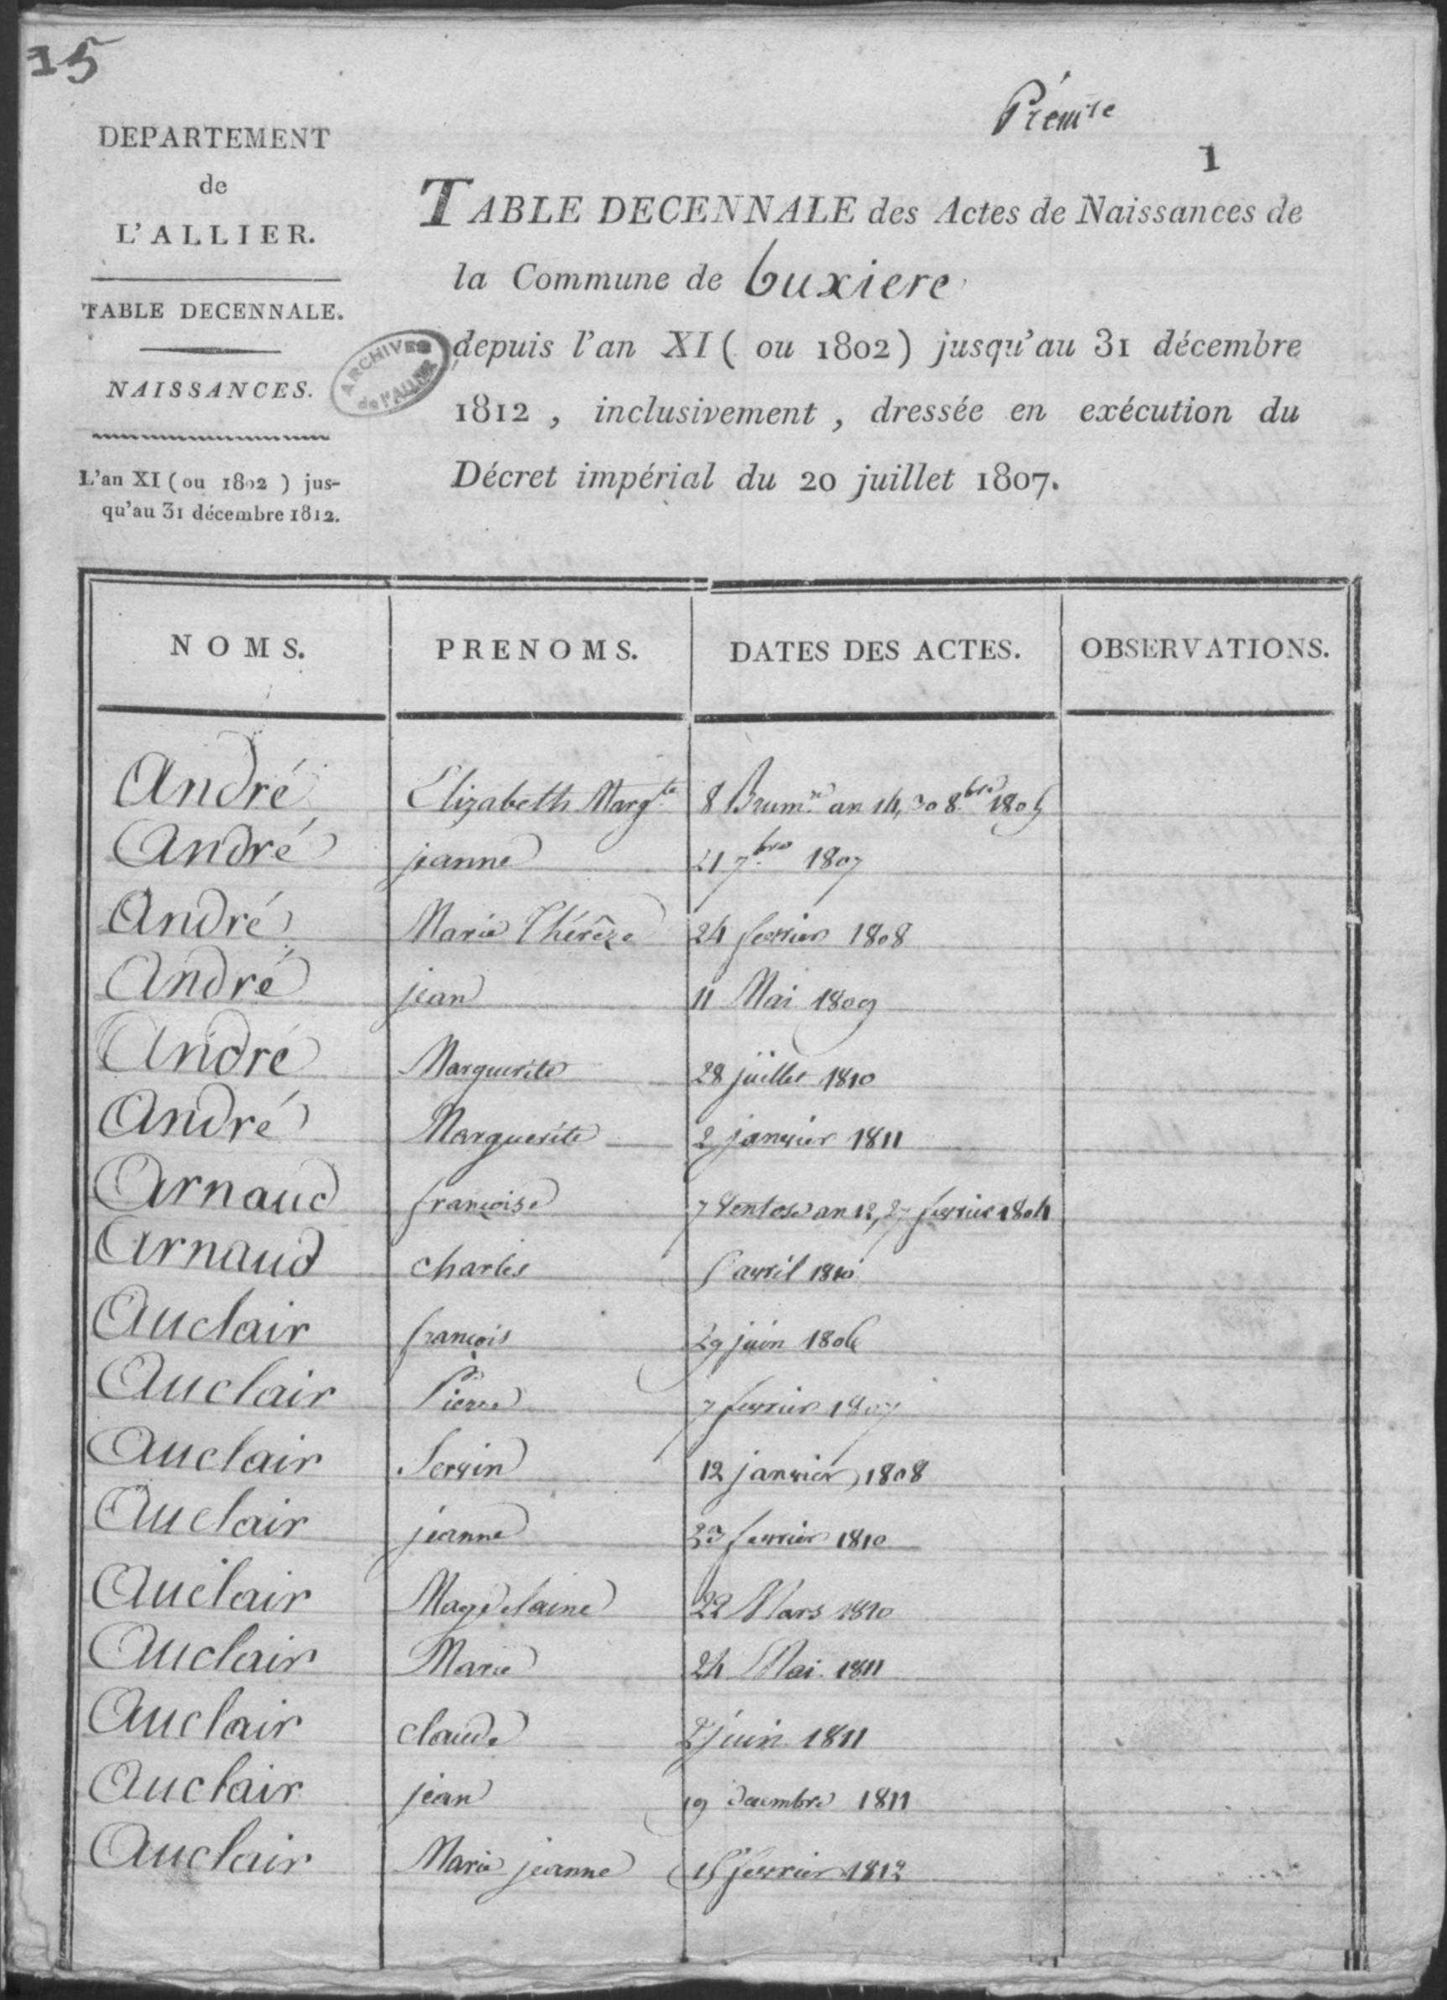 15
Prem.re
1
DEPARTEMENT
de
L'ALLIER.
TABLE DECENNALE.
NAISSANCES.
L'an XI (ou 1802) jus-
qu'au 31 décembre 1812.
TABLE DECENNALE des Actes de Naissances de
la Commune de buxiere
depuis l'an XI (ou 1802) jusqu'au 31 décembre
1812, inclusivement, dressée en exécution du
Décret impérial du 20 juillet 1807.
ARCHIVES
de l'ALLIER
NOMS. PRENOMS. DATES DES ACTES. OBSERVATIONS.
André Elizabeth Marg.te 8 Brum.re an 14, 30 8.bre 1805
André jeanne 21 7.bre 1807
André Marie Thérèze 24 fevrier 1808
André jean 11 Mai 1809
André Marguerite 28 juillet 1810
André Marguerite 2 janvier 1811
Arnaud françoise 7 Ventose an 12, 27 fevrier 1804
Arnaud charles 5 avril 1810
Auclair françois 29 juin 1806
Auclair Pierre 7 fevrier 1807
Auclair Servin 12 janvier 1808
Auclair jeanne 23 fevrier 1810
Auclair Magdelaine 22 Mars 1810
Auclair Marie 24 Mai 1811
Auclair claude 2 juin 1811
Auclair jean 19 decembre 1811
Auclair Marie jeanne 15 fevrier 1812